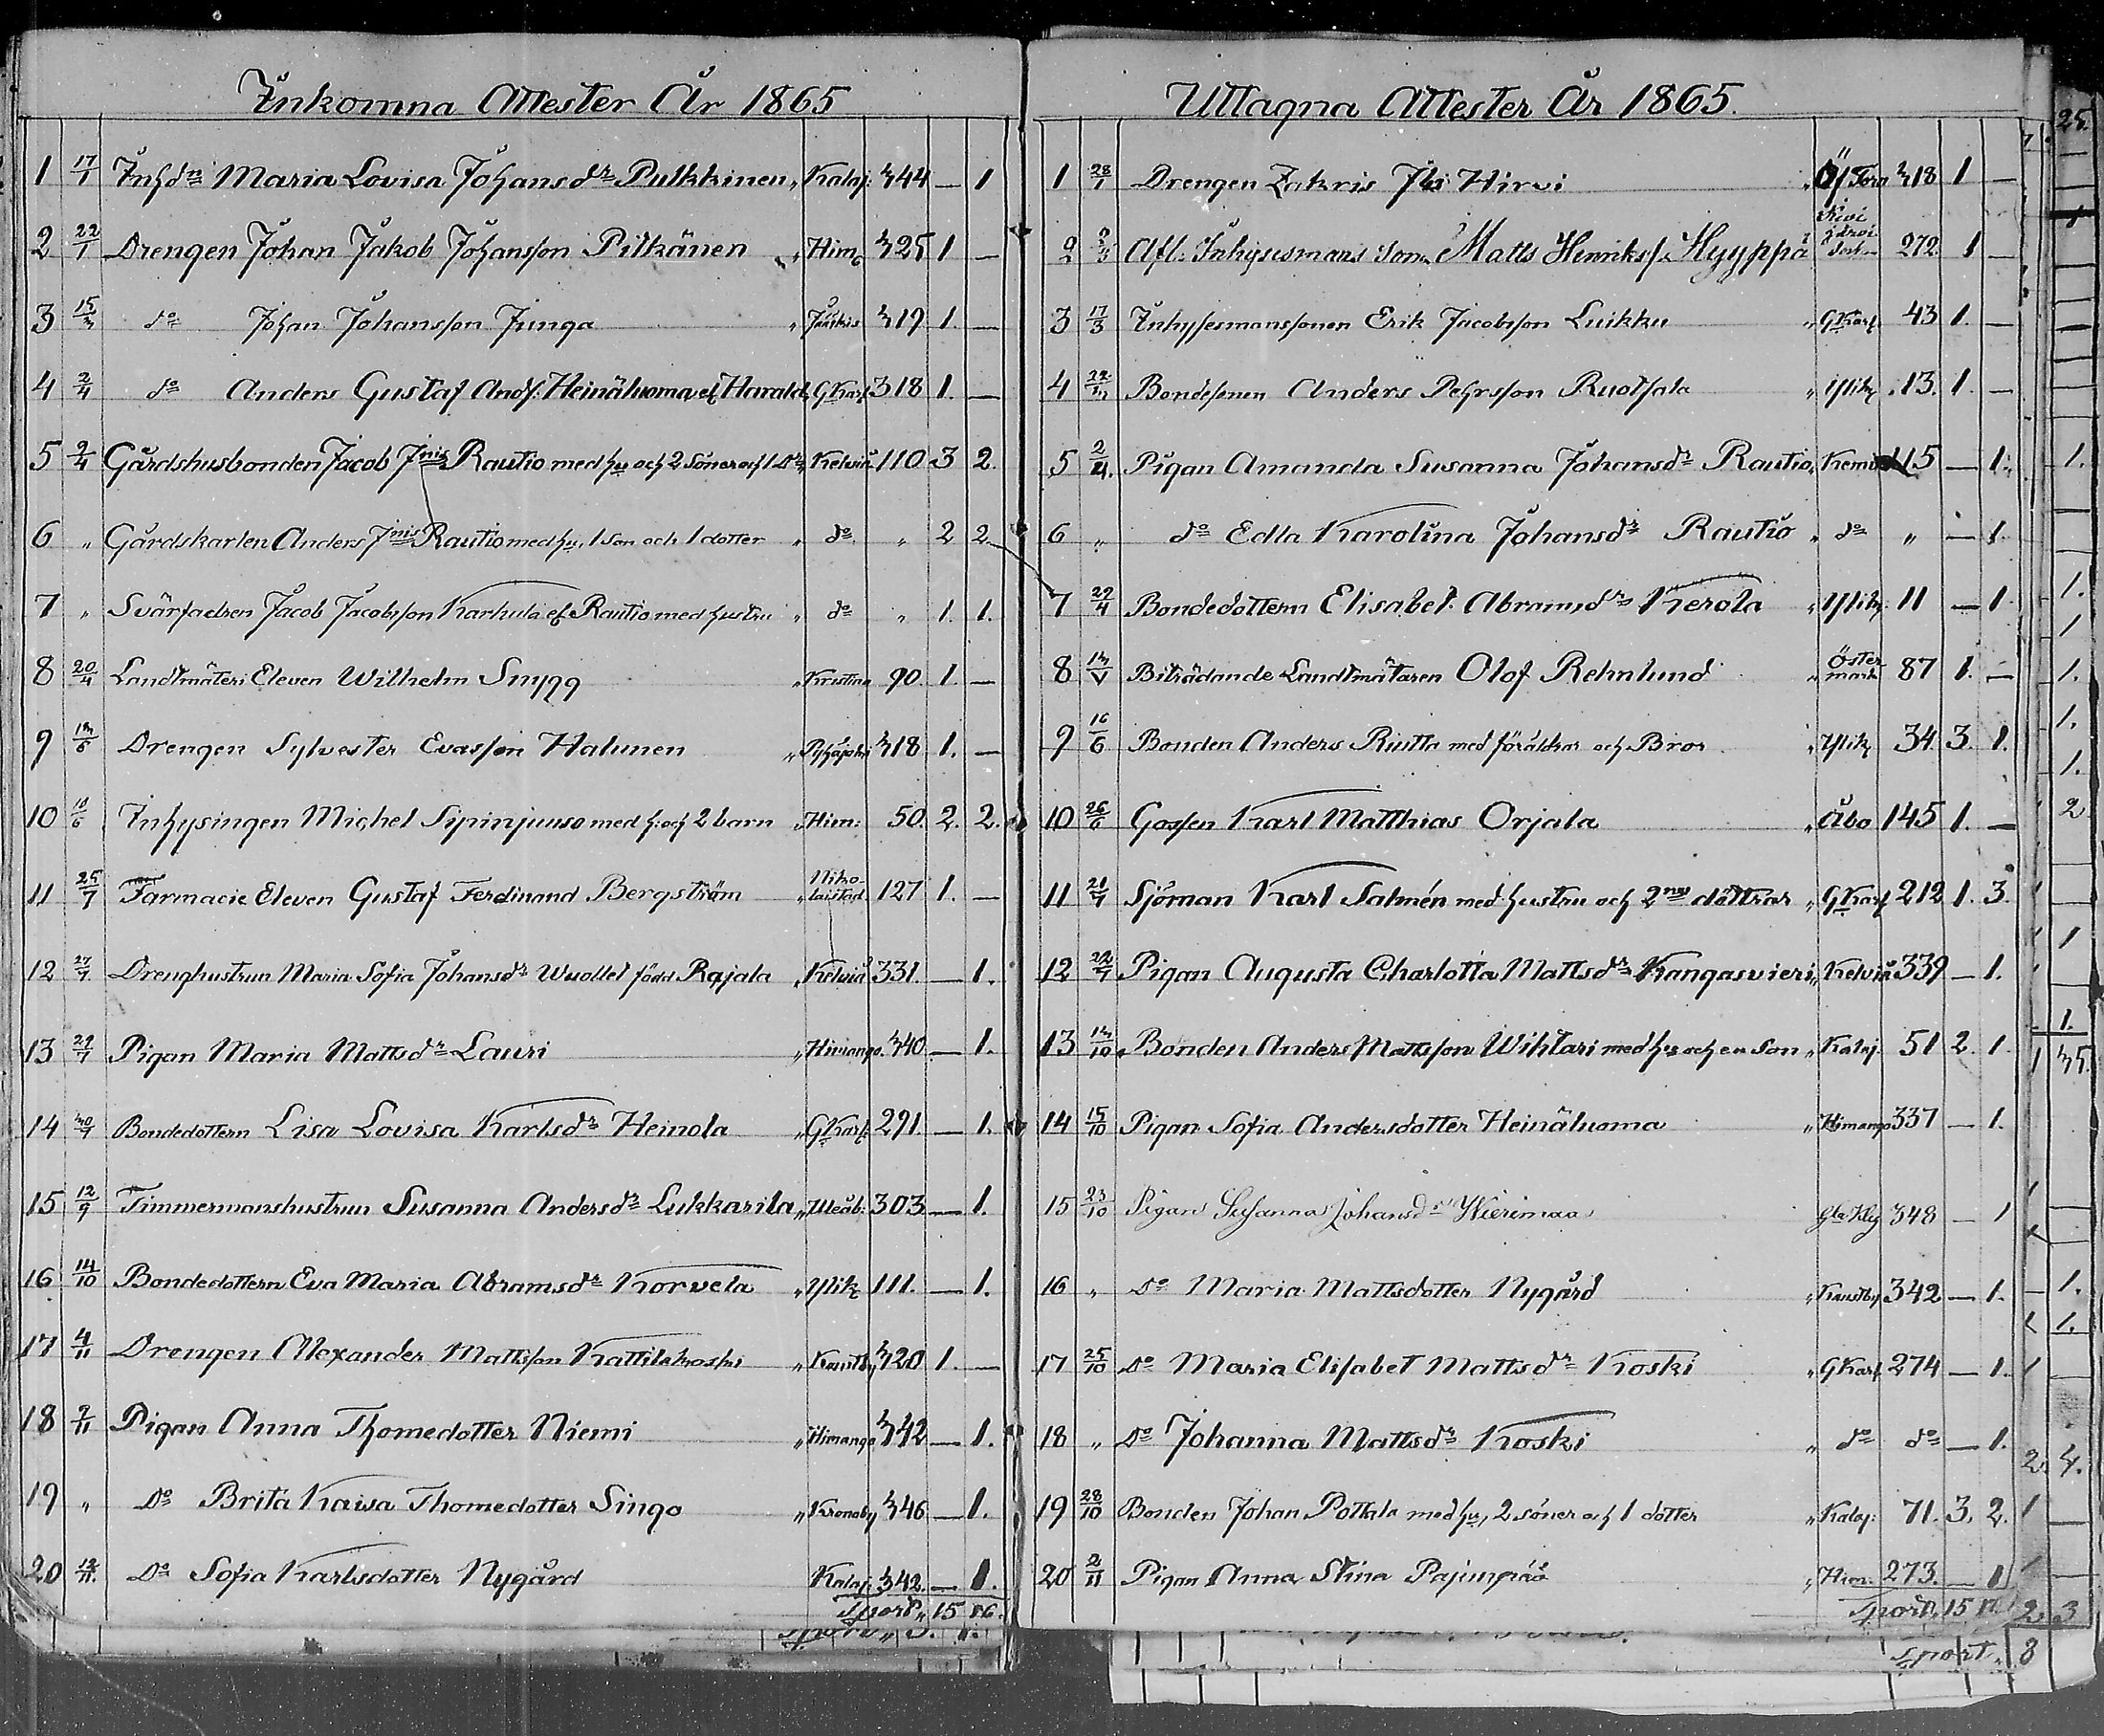 Inkomna Attester År 1865
1 17/1 Inhdn Maria Lovisa Johansdr Pulkkinen „ Kalaj: 344 — 1
2 22/1 Drengen Johan Jakob Johansson Pitkänen „ Him. 325 1 —
3 15/3 do Johan Johansson Junga „ 319 1. —
4 2/4 do Anders Gustaf Andf. Heinäluoma ef Harald „ GKarl. 318 1. —
5 2/4 Gårdshusbonden Jacob Jnis Rautio med hu och 2 söner och 1 dr „ Kelviå 110 3 2.
6 „ Gårdskarlen Anders Jnis Rautio med hu, 1 son och 1 dotter „ do „ 2 2
7 „ Svärfadren Jacob Jacobsson Karhula ef Rautio med hustru „ do „ 1. 1.
8 20/4 Landtmäteri Eleven Wilhelm Snygg „ Kristina 90. 1. —
9 13/6 Drengen Sylvester Evasson Halunen „ Pyhäjoki 318 1. —
10 18/6 Inhysingen Michel Sipinjunso med h. och 2 barn „ Him: 50. 2. 2.
11 25/7 Farmacie Eleven Gustaf Ferdinand Bergström „ Nikolaistad 127 1. —
12 27/7 Drenghustrun Maria Sofia Johansdr Wuollet född Rajala „ Kelviå 331. — 1.
13 29/7 Pigan Maria Mattsdr Lauri „ Himango. 340 — 1.
14 30/7 Bondedottern Lisa Lovisa Karlsdr Heinola „ GKarl. 291 — 1.
15 12/9 Timmermanshustrun Susanna Andersdr Lukkarila „ Uleåb. 303 — 1.
16 14/10 Bondedottern Eva Maria Abramsdr Korvela „ Yliki 111. — 1.
17 4/11 Drengen Alexander Mattsson Kattilakoski „ Kaustby 320 1. —
18 9/11 Pigan Anna Thomedotter Niemi „ Himango 342 — 1.
19 „ Do Brita Kaisa Thomedotter Singo „ Kronoby 346 — 1.
20 12/11. Do Sofia Karlsdotter Nygård Kalaj: 342. — 1.
Sport „ 15 16.
Uttagna Attester År 1865.
1 28/1 Drengen Zakris Jki Hirvi „ Öf Torn 318 1 —
2 2/3 Afl. Inhysesmans son Matts Henriksf. Hyyppä „ Kivijärvi 272. 1 —
3 17/3 Inhysesmanssonen Erik Jacobsson Luikku „ GKarl. 43 1. —
4 22/3 Bondesonen Anders Pehrsson Ruotsala „ Yliki „ 13. 1. —
5 2/4. Pigan Amanda Susanna Johansdr Rautio „ Kemi 115 — 1.
6 „ do Edla Karolina Johansdr Rautio „ do „ — 1.
7 29/4 Bondedottern Elisabet Abramsdr Kerola „ Yliki 11 — 1.
8 13/V Biträdande Landtmätaren Olof Rehnlund „ Östermark 87 1. —
9 16/6 Bonden Anders Riutta med föräldrar och Bror „ Yliki 34. 3. 1.
10 26/6 Gossen Karl Matthias Orjala „ Åbo 145 1. —
11 21/7 Sjöman Karl Salmén med hustru och 2ne döttrar „ GKarl 212 1. 3.
12 22/7 Pigan Augusta Charlotta Mattsdr Kangasvieri „ Kelviå 339 — 1.
13 13/10 Bonden Anders Mattsson Wihtari med hu och en son „ Kalaj. 51 2. 1.
14 15/10 Pigan Sofia Andersdotter Heinäluoma „ Himango 337 — 1.
15 23/10 Pigan Susanna Johansdr Wierimaa 348 — 1
16 „ Do Maria Mattsdotter Nygård „ Kaustby 342 — 1.
17 25/10 Do Maria Elisabet Mattsdr Koski „ GKarl 274 — 1.
18 „ Do Johanna Mattsdr Koski „ do do — 1.
19 28/10 Bonden Johan Pottala med hu, 2 söner och 1 dotter „ Kalaj: 71. 3. 2.
20 2/11 Pigan Anna Stina Pajunpää „ Him: 273. — 1
Sport, 15
Sport. 8